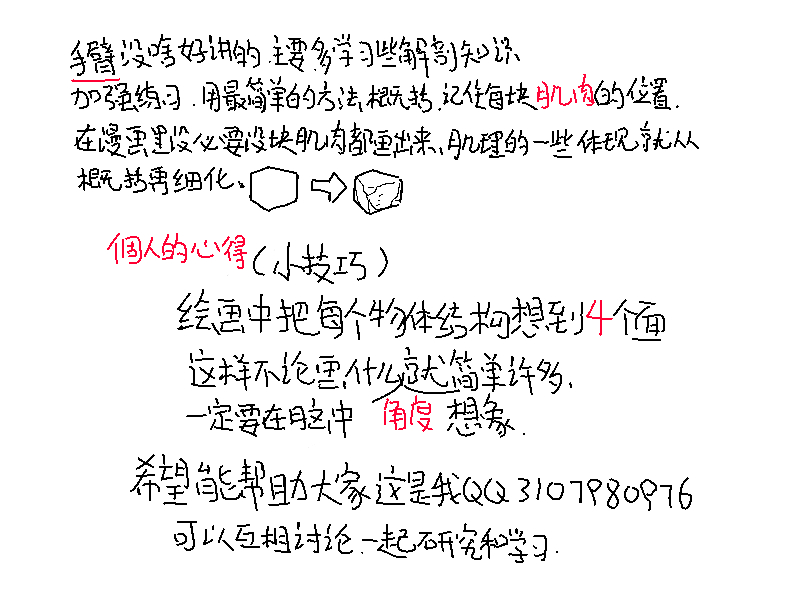 手臂没啥好讲的.主要多学习些解剖知识
加强练习.用最简单的方法,概括.记住每块肌肉的位置.
在漫画里没必要没块肌肉都画出来、肌理的一些体现就从
概括再细化、
個人的心得(小技巧)
绘画中把每个物体结构想到4个面
这样不论画,什么就简单许多.
一定要在脑中 角度 想象.
希望能帮助大家这是我QQ3107980976
可以互相讨论.一起研究和学习.